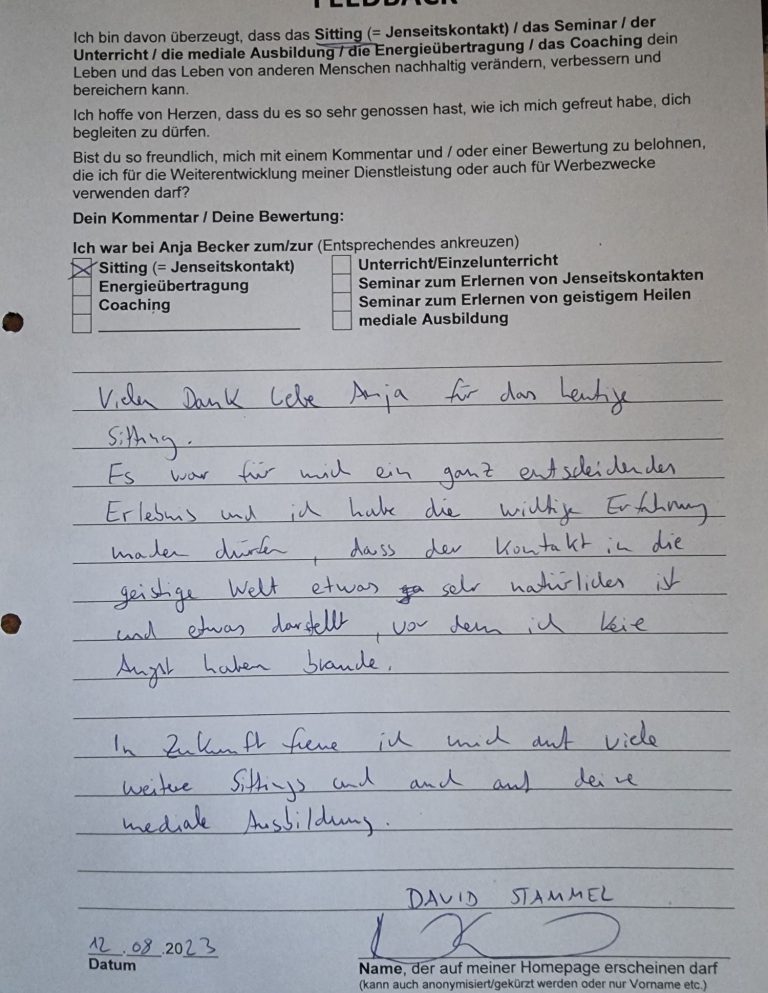 FEEDBACK
Ich bin davon überzeugt, dass das Sitting (= Jenseitskontakt) / das Seminar / der
Unterricht / die mediale Ausbildung / die Energieübertragung / das Coaching dein
Leben und das Leben von anderen Menschen nachhaltig verändern, verbessern und
bereichern kann.
Ich hoffe von Herzen, dass du es so sehr genossen hast, wie ich mich gefreut habe, dich
begleiten zu dürfen.
Bist du so freundlich, mich mit einem Kommentar und / oder einer Bewertung zu belohnen,
die ich für die Weiterentwicklung meiner Dienstleistung oder auch für Werbezwecke
verwenden darf?
Dein Kommentar / Deine Bewertung:
Ich war bei Anja Becker zum/zur (Entsprechendes ankreuzen)
Sitting (= Jenseitskontakt)
Energieübertragung
Coaching
Unterricht/Einzelunterricht
Seminar zum Erlernen von Jenseitskontakten
Seminar zum Erlernen von geistigem Heilen
mediale Ausbildung
Vielen Dank liebe Anja für das heutige
Sitting.
Es war für mich ein ganz entscheidendes
Erlebnis und ich habe die wichtige Erfahrung
machen dürfen, dass der Kontakt in die
geistige Welt etwas sehr natürliches ist
und etwas darstellt, vor dem ich keine
Angst haben brauche.
In Zukunft freue ich mich auf viele
weitere Sittings und auch auf deine
mediale Ausbildung.
DAVID STAMMEL
12.08.2023
Datum
Name, der auf meiner Homepage erscheinen darf
(kann auch anonymisiert/gekürzt werden oder nur Vorname etc.)